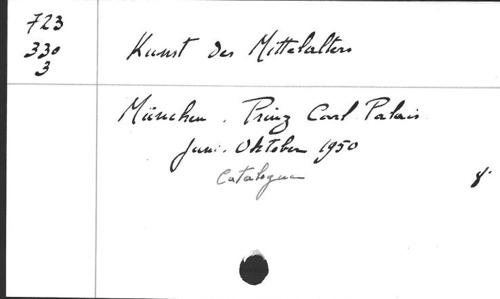 723
330
3
Kunst des Mittelalters
München. Prinz Carl Palais
Juni-Oktober 1950
Catalogue
8°